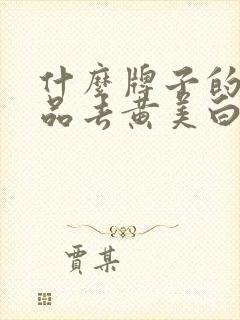 什麼牌子的
品去黄美白
賈某